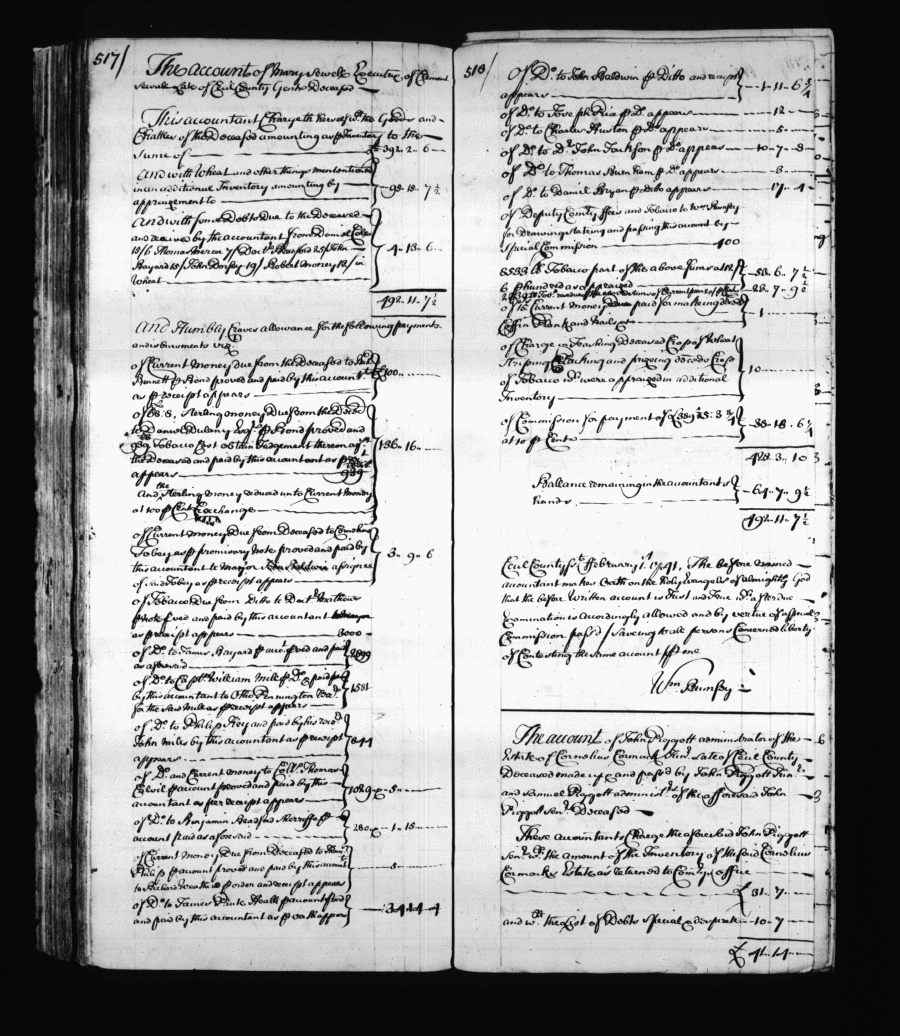 517/
The account of Mary Sewell Executrix of Clement
Sewall Late of Cecil County Gent. Deceased
This accountant Chargeth herself wth the Goods and
Chattles of the Deceased amounting as p Inventory to the
Sume of £ 392 .. 2 .. 6
And with Wheat and other things mentioned
in an additional Inventory amounting by
appraizement to 95 .. 15 .. 7 1/2
And with some Debts Due to the Deceased
and received by the accountant from Daniel
15/6 Thomas Mercer 7/ Bradford 25/ John
Bayard 15/ John Dorsey 19/ Robert Money 12/ in
Wheat 4 .. 13 .. 6
492 .. 11 .. 7 1/2
And Humbly Craves allowance for the following payments
and disbursments viz.
Of Current Money due from the Deceased to
Bennett p Bond proved and paid by this account.t £ 100
as p receipt appears
Of Sterling money Due from the Decd
to Daniel Dulany Esqr. p Bond proved and
989 Tobacco Cost obtain Judgement thereon agt.
the Deceased and paid by this accountant as p
appears 989 136 .. 16
And the Sterling Money reduced unto Current Money
at 100 p Cent Exchange
Of Current Money Due from Deceased to Cornelius
Tobey as p promisary Note proved and paid by
this accountant to Major John Baldwin assignee
of said Tobey as p receipt appears 3 .. 9 .. 6
Of Tobacco Due from Ditto to Doctr Matthews
p Note proved and paid by this accountant
as p receipt appears 3000
Of Do. to James Bayard p acct. proved and paid
as aforesaid
Of Do. to Capt. William Mill p Do. paid
by this accountant to Otho Pennington
for the said Mill as p receipt appears 1551
Of Do. to Philip Key and paid by his
John Miles by this accountant as p receipt
appears 844
Of Do. and Current money to Collo. Thomas
Colvill p account proved and paid by this
accountant as per receipt appears 1029 x 5
Of Do. to Benjamin Bradford Sherriffe p
account paid as aforesaid 280 x 1 .. 15
Of Current Money Due from Deceased to
Philips p account proved and paid by this accountt
to Richard p order and receipt appears 5
Of Do. to James Paul Heath p account proved
and paid by this accountant as p oath appears 3 .. 4 .. 4
518/
Of Do. to John Baldwin p Ditto and receipt
appears 1 .. 11 .. 6 3/4
Of Do. to Joseph Rix p Do. appears 12
Of Do. to Charles Huston p Do. appears 5
Of Do. to Dr. John Jackson p Do. appears 10 .. 7 .. 8
Of Do. to Thomas p Do. appears 3
Of Do. to Daniel Bryan p Ditto appears 17 .. 4
Of Deputy Comry ffees and Tobacco to Wm Rumsey
for Drawing stating and passing this account by
Special Commission 400
8533 lb Tobacco part of the above Sums at 12/
6 p hundred as appraised 53 .. 6 .. 7 1/2
28 .. 7 .. 9 1/2
Of Current Money paid for making Decd
Coffin Plank and Nails 1
Of Charge in Thrashing Deceased Crop of Wheat
Striping Packing and prizeing Deceds Crop
of Tobacco were appraized in additional
Inventory 10
Of Commission for payment of £ 389 .. 5 .. 3 3/4
at 10 p Cent 38 .. 18 .. 6 1/4
428 .. 3 .. 10
Ballance remaining in the accountants
hands 64 .. 7 .. 9 1/2
492 .. 11 .. 7 1/2
Cecil County Sst. ffebruary 1st. 1741. The before named
accountant makes Oath on the Holy Evangels of almighty God
that the before Written account is Just and True after due
Examination is accordingly allowed and by vertue of a special
Commission pass'd / Saveing to all persons Concerned liberty
of Contesting the same account p me
Wm Rumsey
The account of John Piggott administrator of the
Estate of Cornelius Cormack Junr. Late of Cecil County
Deceased made up and pass'd by John Piggott Junr.
and Samuel Piggott administrs. of the afforesaid John
Piggott Senr. Deceased
These accountants Charge the aforesaid John Piggott
Senr. wth the amount of the Inventory of the said Cornelius
Cormacks Estate as returned to Comrys office
£ 31 .. 7
and wth the List of Debts sperate & desperate 10 .. 7
£ 41 .. 14